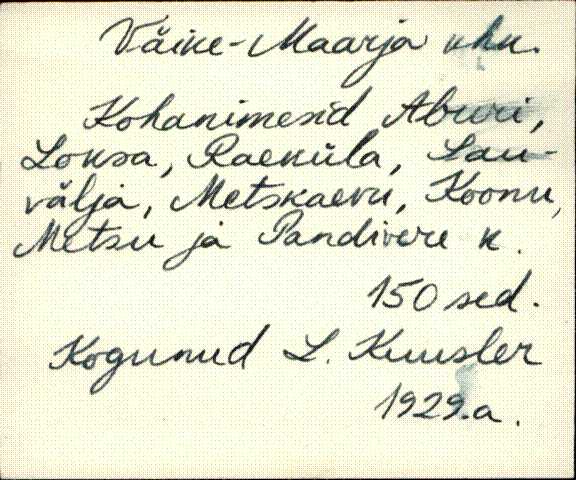 Väike-Maarja khk.
Kohanimesid Aburi,
Loksa, Raeküla, Lau-
välja, Metskaevu, Koonu,
Metsu ja Pandivere k.
150 sed.
Kogunud L. Kuusler
1929.a.